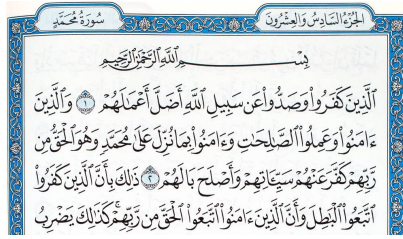 الجُزْءُ السَّادِسُ وَالعِشْرُونَ سُورَةُ مُحَمَّدٍ
بِسْمِ اللَّهِ الرَّحْمَٰنِ الرَّحِيمِ
الَّذِينَ كَفَرُوا وَصَدُّوا عَن سَبِيلِ اللَّهِ أَضَلَّ أَعْمَالَهُمْ ١ وَالَّذِينَ
ءَامَنُوا وَعَمِلُوا الصَّالِحَاتِ وَءَامَنُوا بِمَا نُزِّلَ عَلَىٰ مُحَمَّدٍ وَهُوَ الْحَقُّ مِن
رَّبِّهِمْ كَفَّرَ عَنْهُمْ سَيِّئَاتِهِمْ وَأَصْلَحَ بَالَهُمْ ٢ ذَٰلِكَ بِأَنَّ الَّذِينَ كَفَرُوا
اتَّبَعُوا الْبَاطِلَ وَأَنَّ الَّذِينَ ءَامَنُوا اتَّبَعُوا الْحَقَّ مِن رَّبِّهِمْ ۚ كَذَٰلِكَ يَضْرِبُ